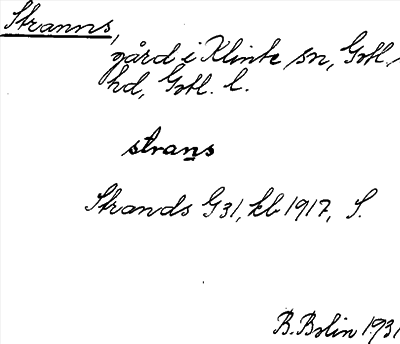 Stranns,
gård i Klinte sn, Gotl.
hd, Gotl. l.
strans
Strands G31, kb 1917, S.
B. Bolin 1931